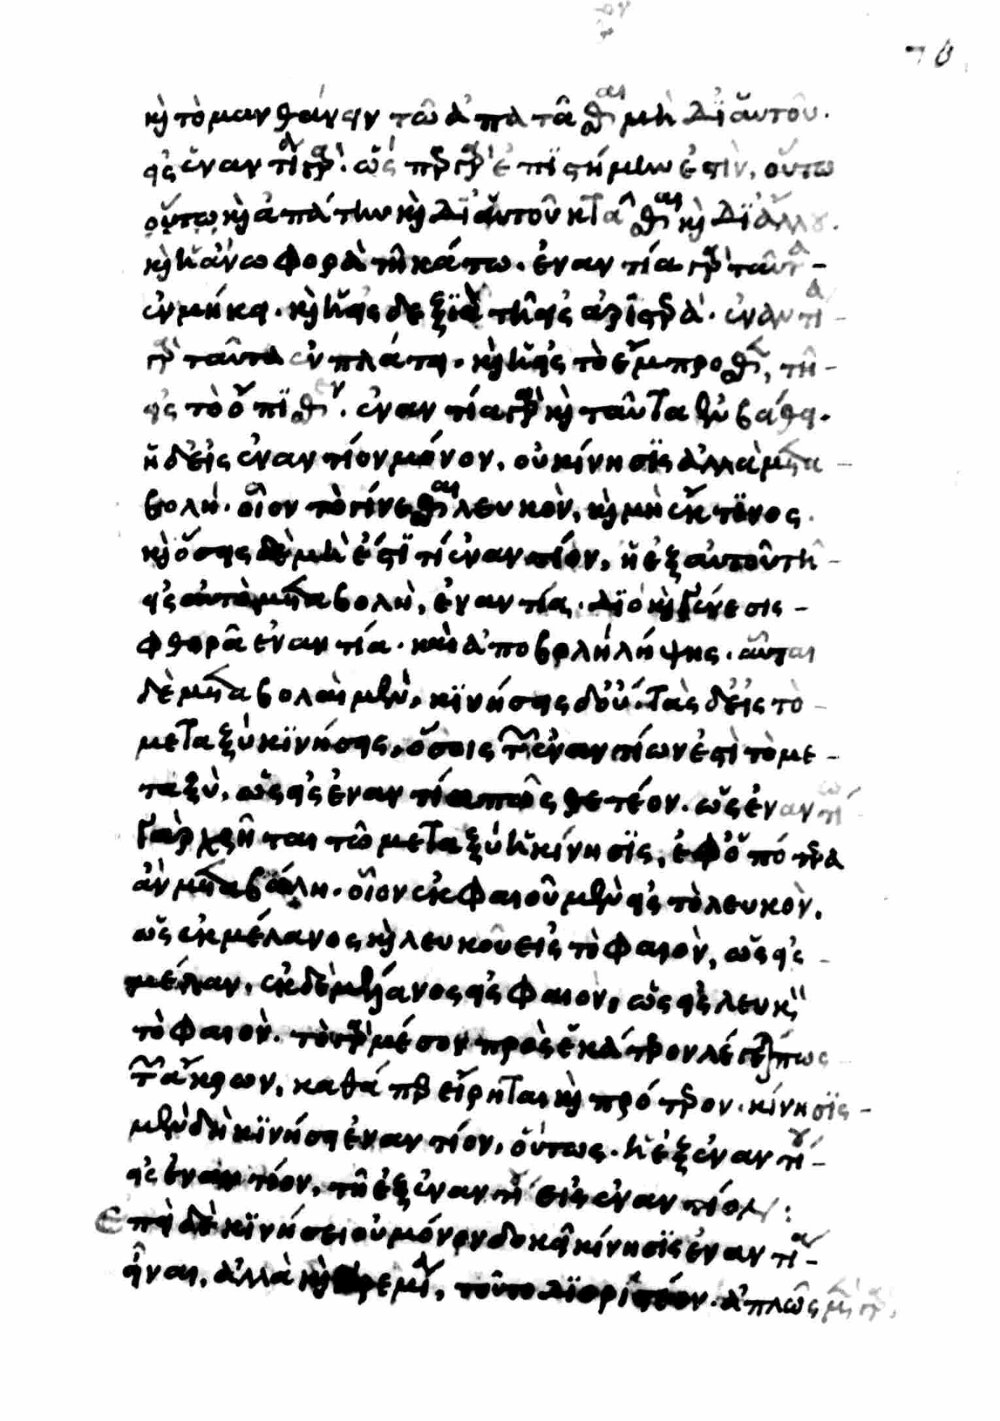 καὶ τὸ μανθάνειν τῶ ἀπατᾶσθαι μὴ δι' αὑτοῦ.
εἰς ἐναντία γάρ. ὥσπερ γὰρ ἐπιστήμην ἐστὶν, οὕτω
οὕτω καὶ ἀπάτην καὶ δι' αὑτοῦ κτᾶσθαι καὶ δι' ἄλλου.
καὶ ἡ ἄνω φορὰ τῆ κάτω. ἐναντία γὰρ ταῦτα
ἐν μήκει. καὶ ἡ εἰς δεξιὰ τῆ εἰς ἀριστερά. ἐναντία
γὰρ ταῦτα ἐν πλάτει. καὶ ἡ εἰς τὸ ἔμπροσθεν, τῆ
εἰς τὸ ὄπισθεν. ἐναντία γὰρ καὶ ταῦτα ἐν βάθει.
ἡ δ' εἰς ἐναντίον μόνον, οὐ κίνησις ἀλλὰ μετα
βολή. οἷον τὸ γίνεσθαι λευκὸν, καὶ μὴ ἔκ τινος
καὶ ὅσοις δὲ μὴ ἔστι τι ἐναντίον, ἡ ἐξ αὐτοῦ τῆ
εἰς αὐτὸ μεταβολὴ, ἐναντία. διὸ καὶ γένεσις
φθορᾶ ἐναντία. καὶ ἀποβολὴ λήψει. αὗται
δὲ μεταβολαὶ μὲν, κινήσεις δ' οὔ. τὰς δ' εἰς τὸ
μεταξὺ κινήσεις, ὅσοις τῶν ἐναντίων ἐστὶ τὸ με
ταξὺ, ὡς εἰς ἐναντία πως θετέον. ὡς ἐναντίω
γὰρ χρῆται τῶ μεταξὺ ἡ κίνησις, ἐφ' ὁπότερα
ἂν μεταβάλη. οἷον ἐκ φαιοῦ μὲν εἰς τὸ λευκὸν,
ὡς ἐκ μέλανος καὶ λευκοῦ εἰς τὸ φαιὸν, ὡς εἰς
μέλαν, ἐκ δὲ μέλανος εἰς φαιὸν, ὡς εἰς λευκὸν
τὸ φαιὸν. τὸ γὰρ μέσον πρὸς ἑκάτερον λέγεταί πως
τῶν ἄκρων, καθάπερ εἴρηται καὶ πρότερον. κίνησις
μὲν δὴ κινήσει ἐναντίον, οὕτως. ἡ ἐξ ἐναντίου
εἰς ἐναντίον, τῆ ἐξ ἐναντίου εἰς ἐναντίον:
Ἐπεὶ δὲ κινήσει οὐ μόνον δοκεῖ κίνησις ἐναντία
εἶναι, ἀλλὰ καὶ ἠρεμία, τοῦτο διοριστέον. ἁπλῶς μὲν γὰρ,